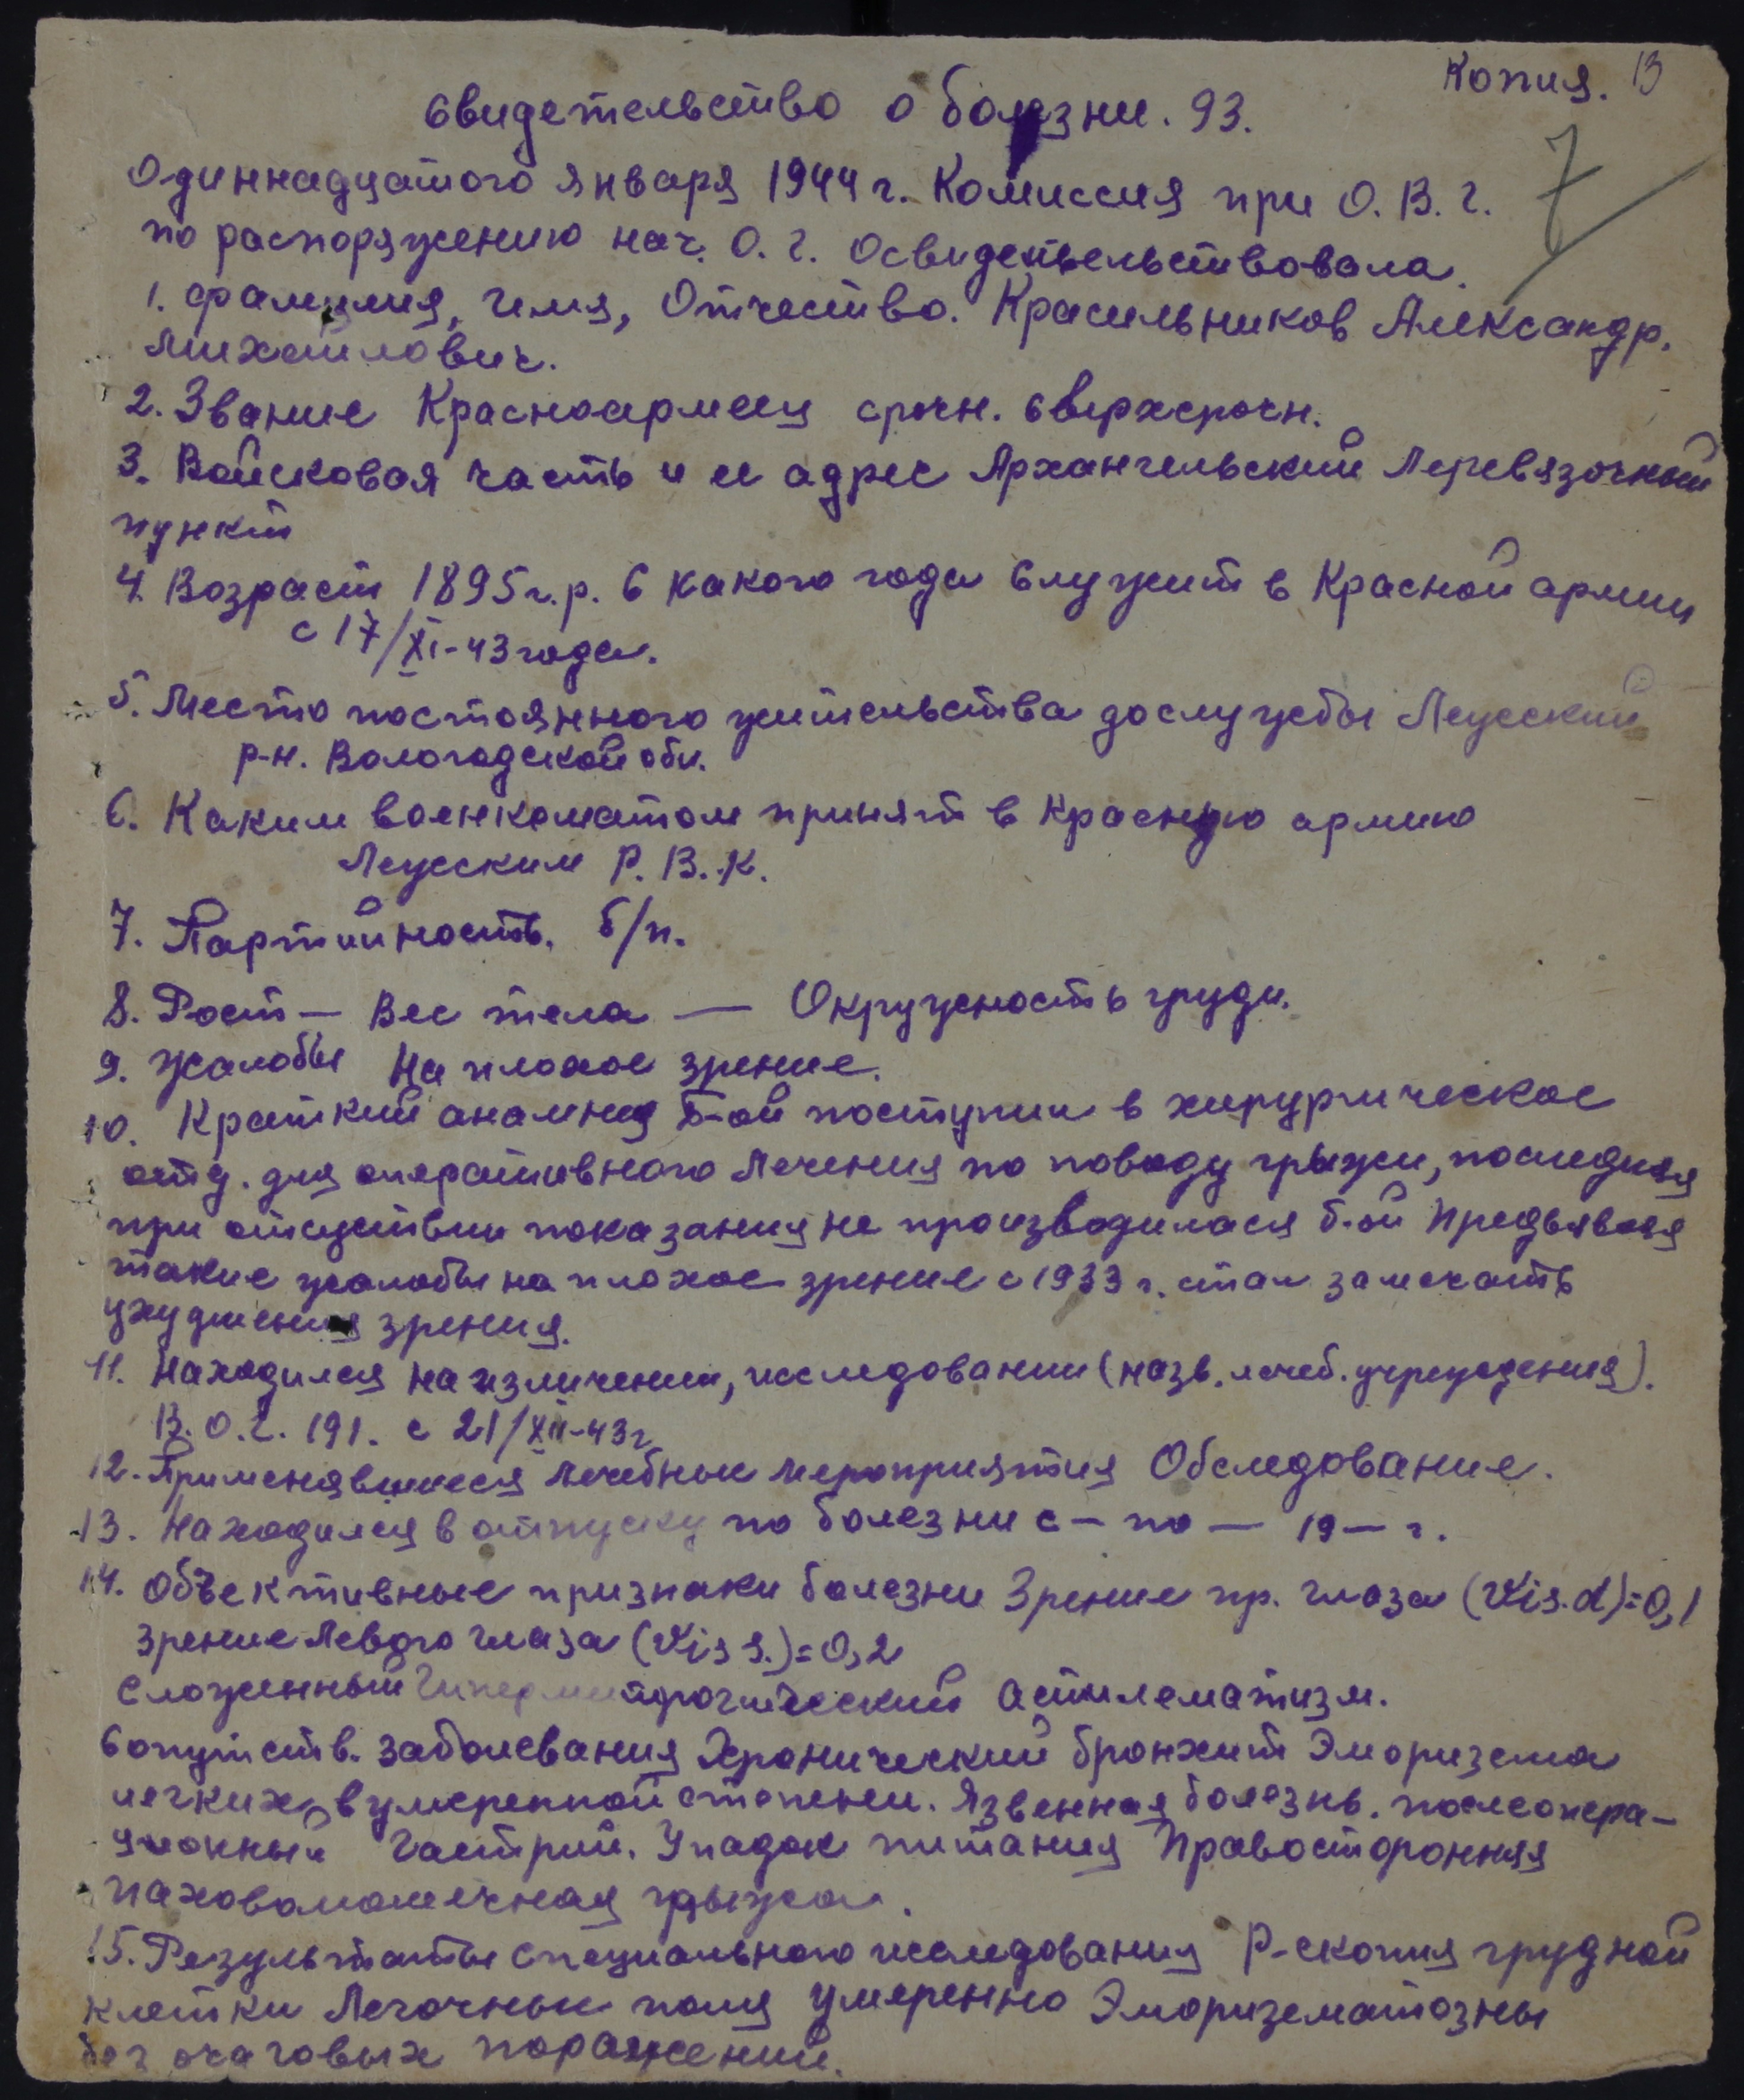 Копия. 13
Свидетельство о болезни. 93.
7
Одиннадцатого января 1944 г. Комиссия при О. В. Г.
по распоряжению нач. О. Г. Освидетельствовала.
1. Фамилия, Имя, Отчество. Красильников Александр.
Михайлович.
2. Звание Красноармеец срочн. Сверхсрочн.
3. Войсковая часть и ее адрес Архангельский Перевязочный
пункт
4. Возраст 1895 г.р. С какого года Служит в Красной армии
с 17/XI-43 года.
5. Место постоянного жительства до службы Леусский
р-н. Вологодской обл.
6. Каким военкоматом принят в Красную армию
Леусским Р. В. К.
7. Партийность. б/п.
8. Рост — Вес тела — Окружность груди.
9. Жалобы На плохое зрение.
10. Краткий анамнез Б-ой поступил в хирургическое
отд. для оперативного лечения по поводу грыжи, последняя
при отсутствии показания не производилася б-ой предъявляя
такие жалобы на плохое зрение с 1933 г. стал замечать
ухудшения зрения.
11. Находился на изличении, исследовании (назв. лечеб. учреждения).
В. О. Г. 191. с 21/XII-43 г
12. Применявшиеся лечебные мероприятия Обследование.
13. Находился в отпуску по болезни с — по — 19 — г.
14. Объективные признаки болезни Зрение пр. глаза (Vis. d)=0,1
Зрение левого глаза (Vis s.)=0,2
Сложенный астилематизм.
Сопутств. заболевания Хронический бронхит Эморизема
легких, в умеренной степени. Язвенная болезнь. послеопера-
ционный Гастрит. Упадок питания Правосторонняя
паховомошечная грыжа.
15. Результаты специального исследования Р-скопия грудной
клетки Легочные поля умеренно Эморизематозны
без очаговых поражений.